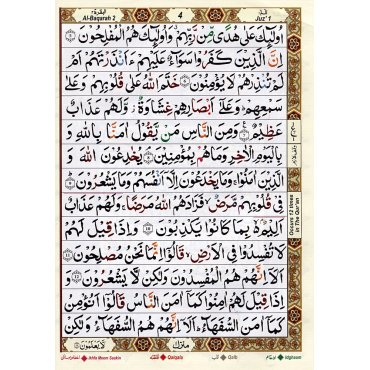 البقرة ٢
Al-Baqarah 2
4
Juz' 1
أُولَٰئِكَ عَلَىٰ هُدًى مِّن رَّبِّهِمْ وَأُولَٰئِكَ هُمُ الْمُفْلِحُونَ
إِنَّ الَّذِينَ كَفَرُوا سَوَاءٌ عَلَيْهِمْ ءَأَنذَرْتَهُمْ أَمْ
لَمْ تُنذِرْهُمْ لَا يُؤْمِنُونَ خَتَمَ اللَّهُ عَلَىٰ قُلُوبِهِمْ وَعَلَىٰ
سَمْعِهِمْ وَعَلَىٰ أَبْصَارِهِمْ غِشَاوَةٌ وَلَهُمْ عَذَابٌ
عَظِيمٌ وَمِنَ النَّاسِ مَن يَقُولُ آمَنَّا بِاللَّهِ وَ
بِالْيَوْمِ الْآخِرِ وَمَا هُم بِمُؤْمِنِينَ يُخَادِعُونَ اللَّهَ وَ
الَّذِينَ آمَنُوا وَمَا يَخْدَعُونَ إِلَّا أَنفُسَهُمْ وَمَا يَشْعُرُونَ
فِي قُلُوبِهِم مَّرَضٌ فَزَادَهُمُ اللَّهُ مَرَضًا وَلَهُمْ عَذَابٌ
أَلِيمٌ بِمَا كَانُوا يَكْذِبُونَ ١٠ وَإِذَا قِيلَ لَهُمْ
لَا تُفْسِدُوا فِي الْأَرْضِ قَالُوا إِنَّمَا نَحْنُ مُصْلِحُونَ ١١
أَلَا إِنَّهُمْ هُمُ الْمُفْسِدُونَ وَلَٰكِن لَّا يَشْعُرُونَ ١٢ وَ
إِذَا قِيلَ لَهُمْ آمِنُوا كَمَا آمَنَ النَّاسُ قَالُوا أَنُؤْمِنُ
كَمَا آمَنَ السُّفَهَاءُ أَلَا إِنَّهُمْ هُمُ السُّفَهَاءُ وَلَٰكِن
لَّا يَعْلَمُونَ
منزل
Occurs 12 times in The Qur'an
Ikhfa Meem Saakin
Qalqala
قلقله
Qalb
قلب
Idghaam
ادغام